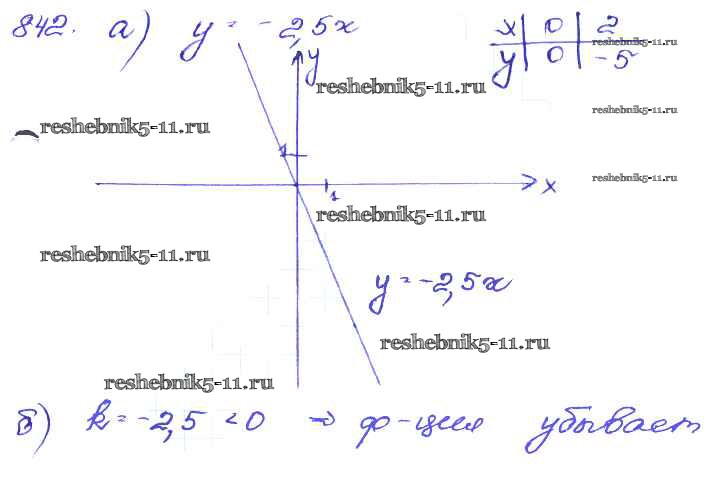 842. а) y = -2,5x
x | 0 | 2
y | 0 | -5
reshebnik5-11.ru
y
reshebnik5-11.ru
reshebnik5-11.ru
reshebnik5-11.ru
1
x
reshebnik5-11.ru
1
reshebnik5-11.ru
reshebnik5-11.ru
y = -2,5x
reshebnik5-11.ru
reshebnik5-11.ru
б) k = -2,5 < 0 ⇒ ф-ция убывает